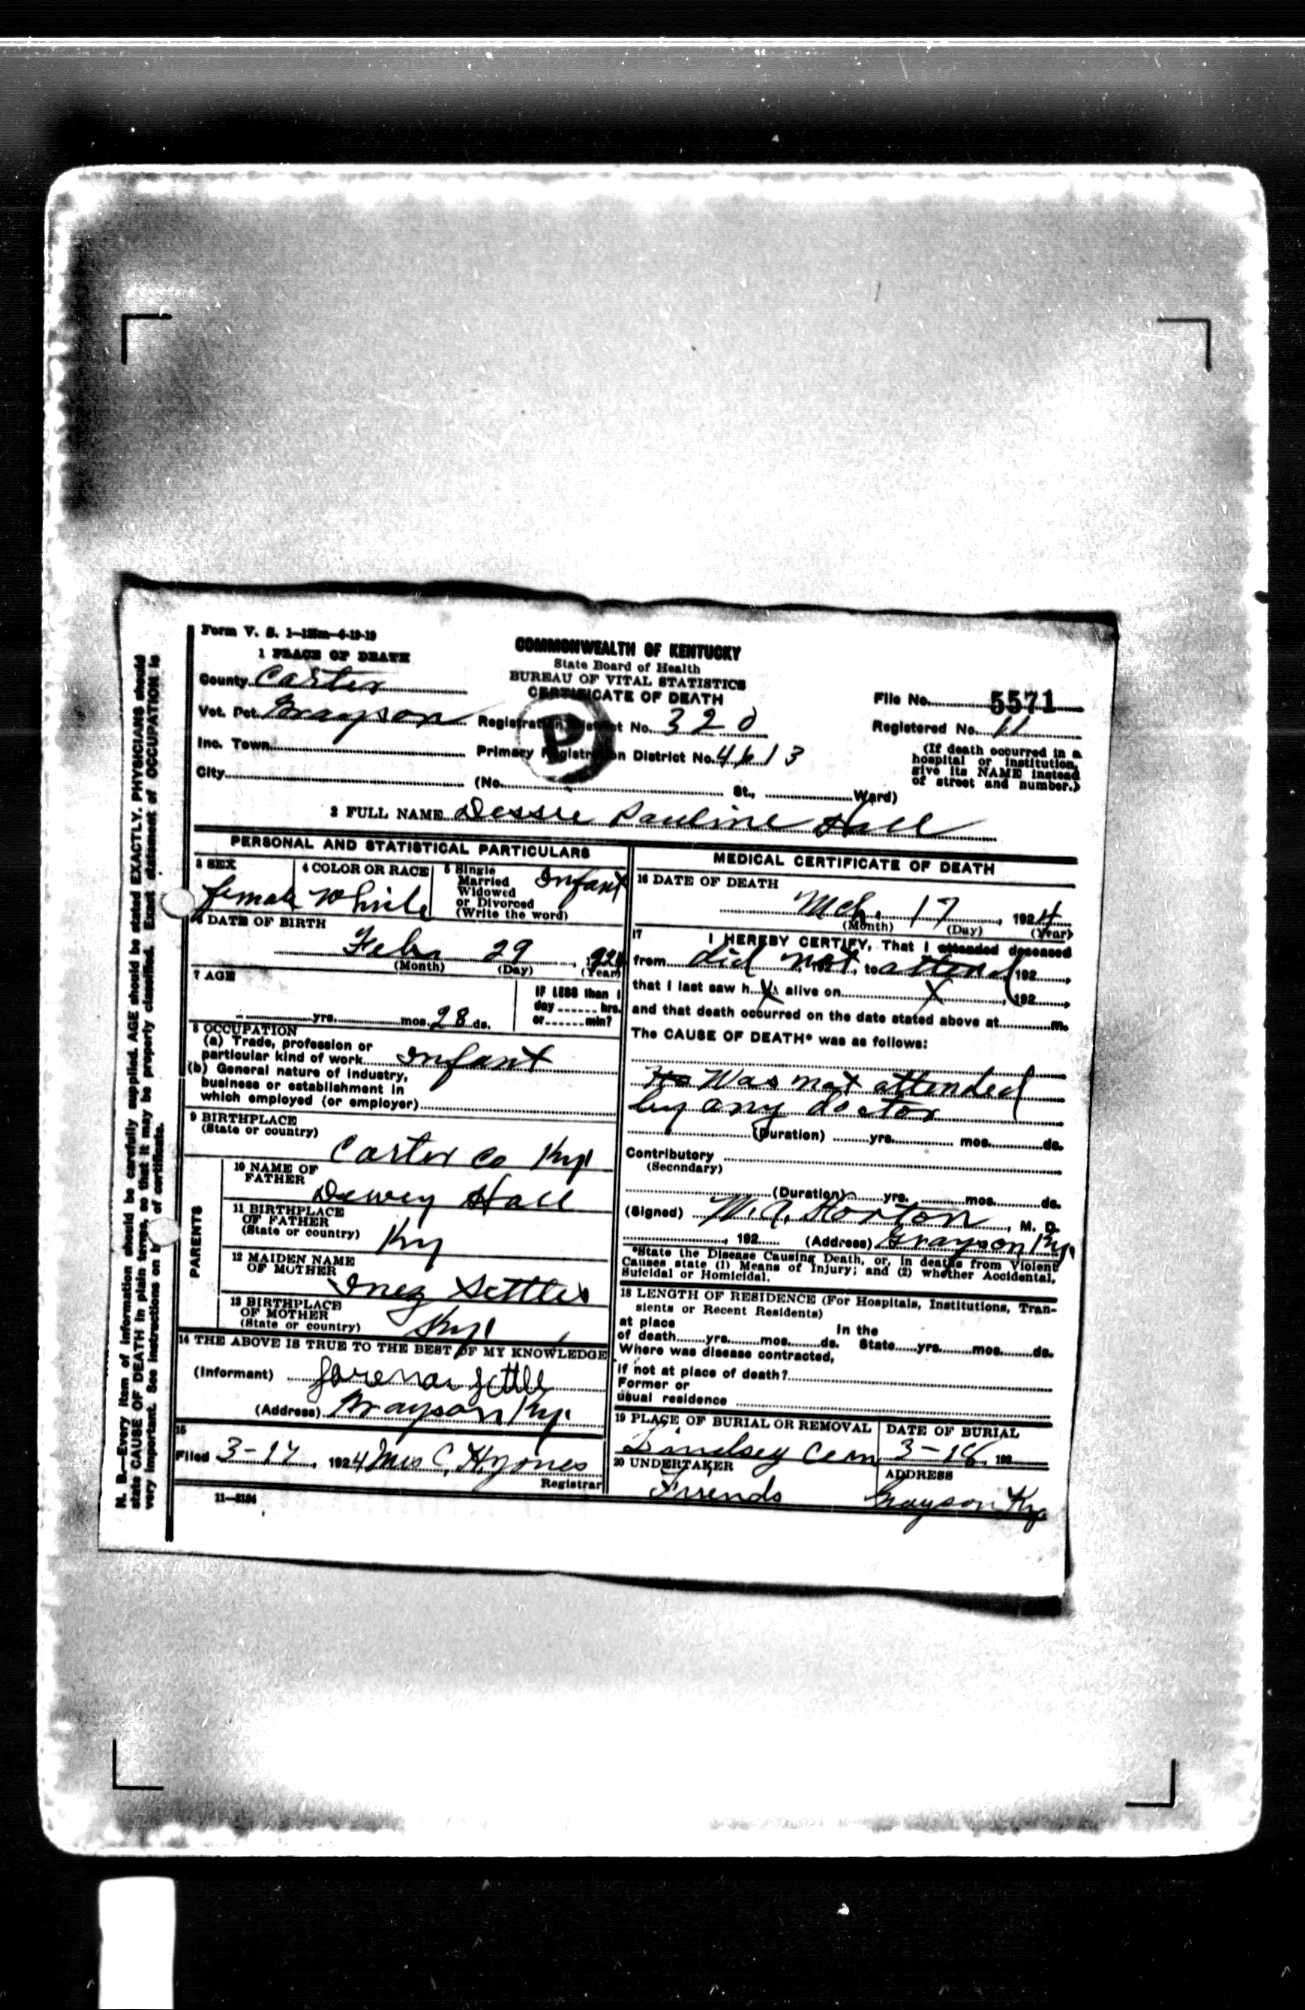 Form V. S. 1-125m-4-19-19
1 PLACE OF DEATH
COMMONWEALTH OF KENTUCKY
State Board of Health
BUREAU OF VITAL STATISTICS
CERTIFICATE OF DEATH
County Carter
Vot. Pct. Grayson Registration District No. 320
File No. 5571
Registered No. 11
Inc. Town Primary Registration District No. 4613
City (No. St., Ward)
(If death occurred in a
hospital or institution,
give its NAME instead
of street and number.)
P
2 FULL NAME Dessie Pauline Hall
PERSONAL AND STATISTICAL PARTICULARS
3 SEX
female
4 COLOR OR RACE
White
5 Single
Married
Widowed
or Divorced
(Write the word)
Infant
6 DATE OF BIRTH
Feb. 29, 1924
(Month) (Day) (Year)
7 AGE
yrs. mos. 28 ds.
IF LESS than 1
day hrs.
or min?
8 OCCUPATION
(a) Trade, profession or
particular kind of work Infant
(b) General nature of industry,
business or establishment in
which employed (or employer)
9 BIRTHPLACE
(State or country)
Carter Co Ky.
PARENTS
10 NAME OF
FATHER
Dewey Hall
11 BIRTHPLACE
OF FATHER
(State or country)
Ky
12 MAIDEN NAME
OF MOTHER
Inez Settles
13 BIRTHPLACE
OF MOTHER
(State or country)
Ky.
14 THE ABOVE IS TRUE TO THE BEST OF MY KNOWLEDGE
(Informant) Settle
(Address) Grayson Ky.
15
Filed 3-17, 1924 Mrs C. H. Jones
Registrar
11-3184
MEDICAL CERTIFICATE OF DEATH
16 DATE OF DEATH
Mch. 17, 1924
(Month) (Day) (Year)
17 I HEREBY CERTIFY, That I attended deceased
from did not, 192, to attend, 192,
that I last saw h X alive on X, 192,
and that death occurred on the date stated above at m.
The CAUSE OF DEATH* was as follows:
He Was not attended
by any doctor
(Duration) yrs. mos. ds.
Contributory
(Secondary)
(Duration) yrs. mos. ds.
(Signed) Horton, M. D.
, 192 (Address) Grayson Ky.
*State the Disease Causing Death, or, in deaths from Violent
Causes state (1) Means of Injury; and (2) whether Accidental,
Suicidal or Homicidal.
18 LENGTH OF RESIDENCE (For Hospitals, Institutions, Tran-
sients or Recent Residents)
at place In the
of death yrs. mos. ds. State yrs. mos. ds.
Where was disease contracted,
if not at place of death?
Former or
usual residence
19 PLACE OF BURIAL OR REMOVAL
Lindsey Cem
DATE OF BURIAL
3-18, 192
20 UNDERTAKER
Friends
ADDRESS
Grayson Ky
N. B.—Every item of information should be carefully supplied. AGE should be stated EXACTLY. PHYSICIANS should
state CAUSE OF DEATH in plain terms, so that it may be properly classified. Exact statement of OCCUPATION is
very important. See instructions on back of certificate.